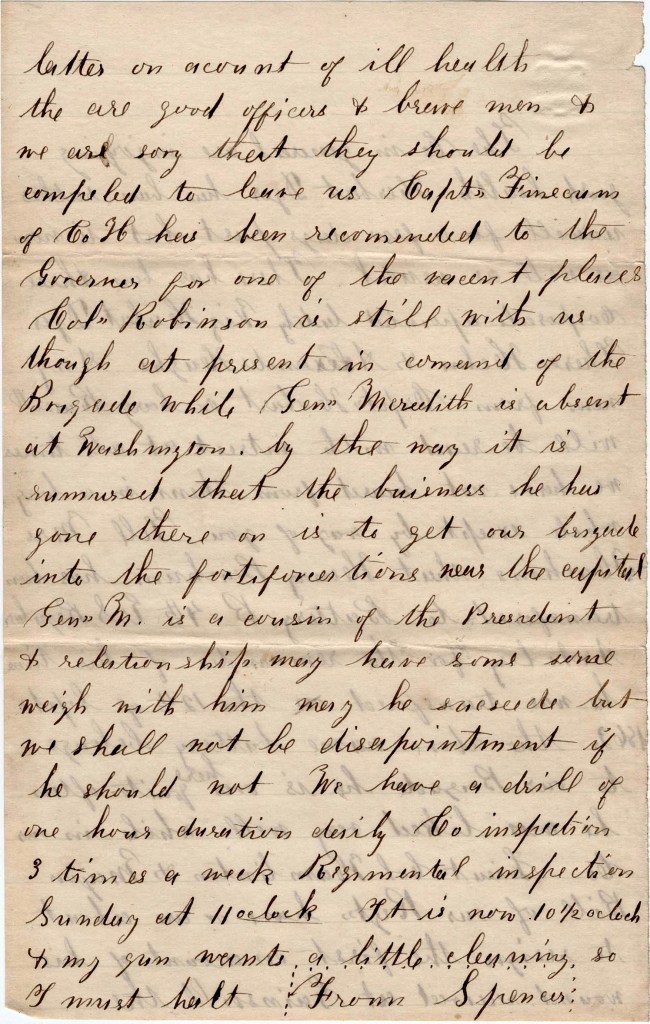 latter on acount of ill health
the are good officers & breve men &
we are sory thert they should be
compeled to leave us Capt" Finecum
of Co H has been recomended to the
Governer for one of the vacent plaices
Col" Robinson is still with us
though at present in comand of the
Brigade while Gen" Meredith is absent
at Washington. by the way it is
rumured that the buisness he has
gone there on is to get our brigade
into the near the capital
Gen" M. is a cousin of the President
& relationship may have some
weigh with him may he suescede but
we shall not be disapointment if
he should not We have a drill of
one hour duration daily Co inspection
3 times a week Regimental inspection
Sunday at 11 oclock It is now 10 1/2 oclock
& my gun wants a little cleaning so
I must halt From Spencer